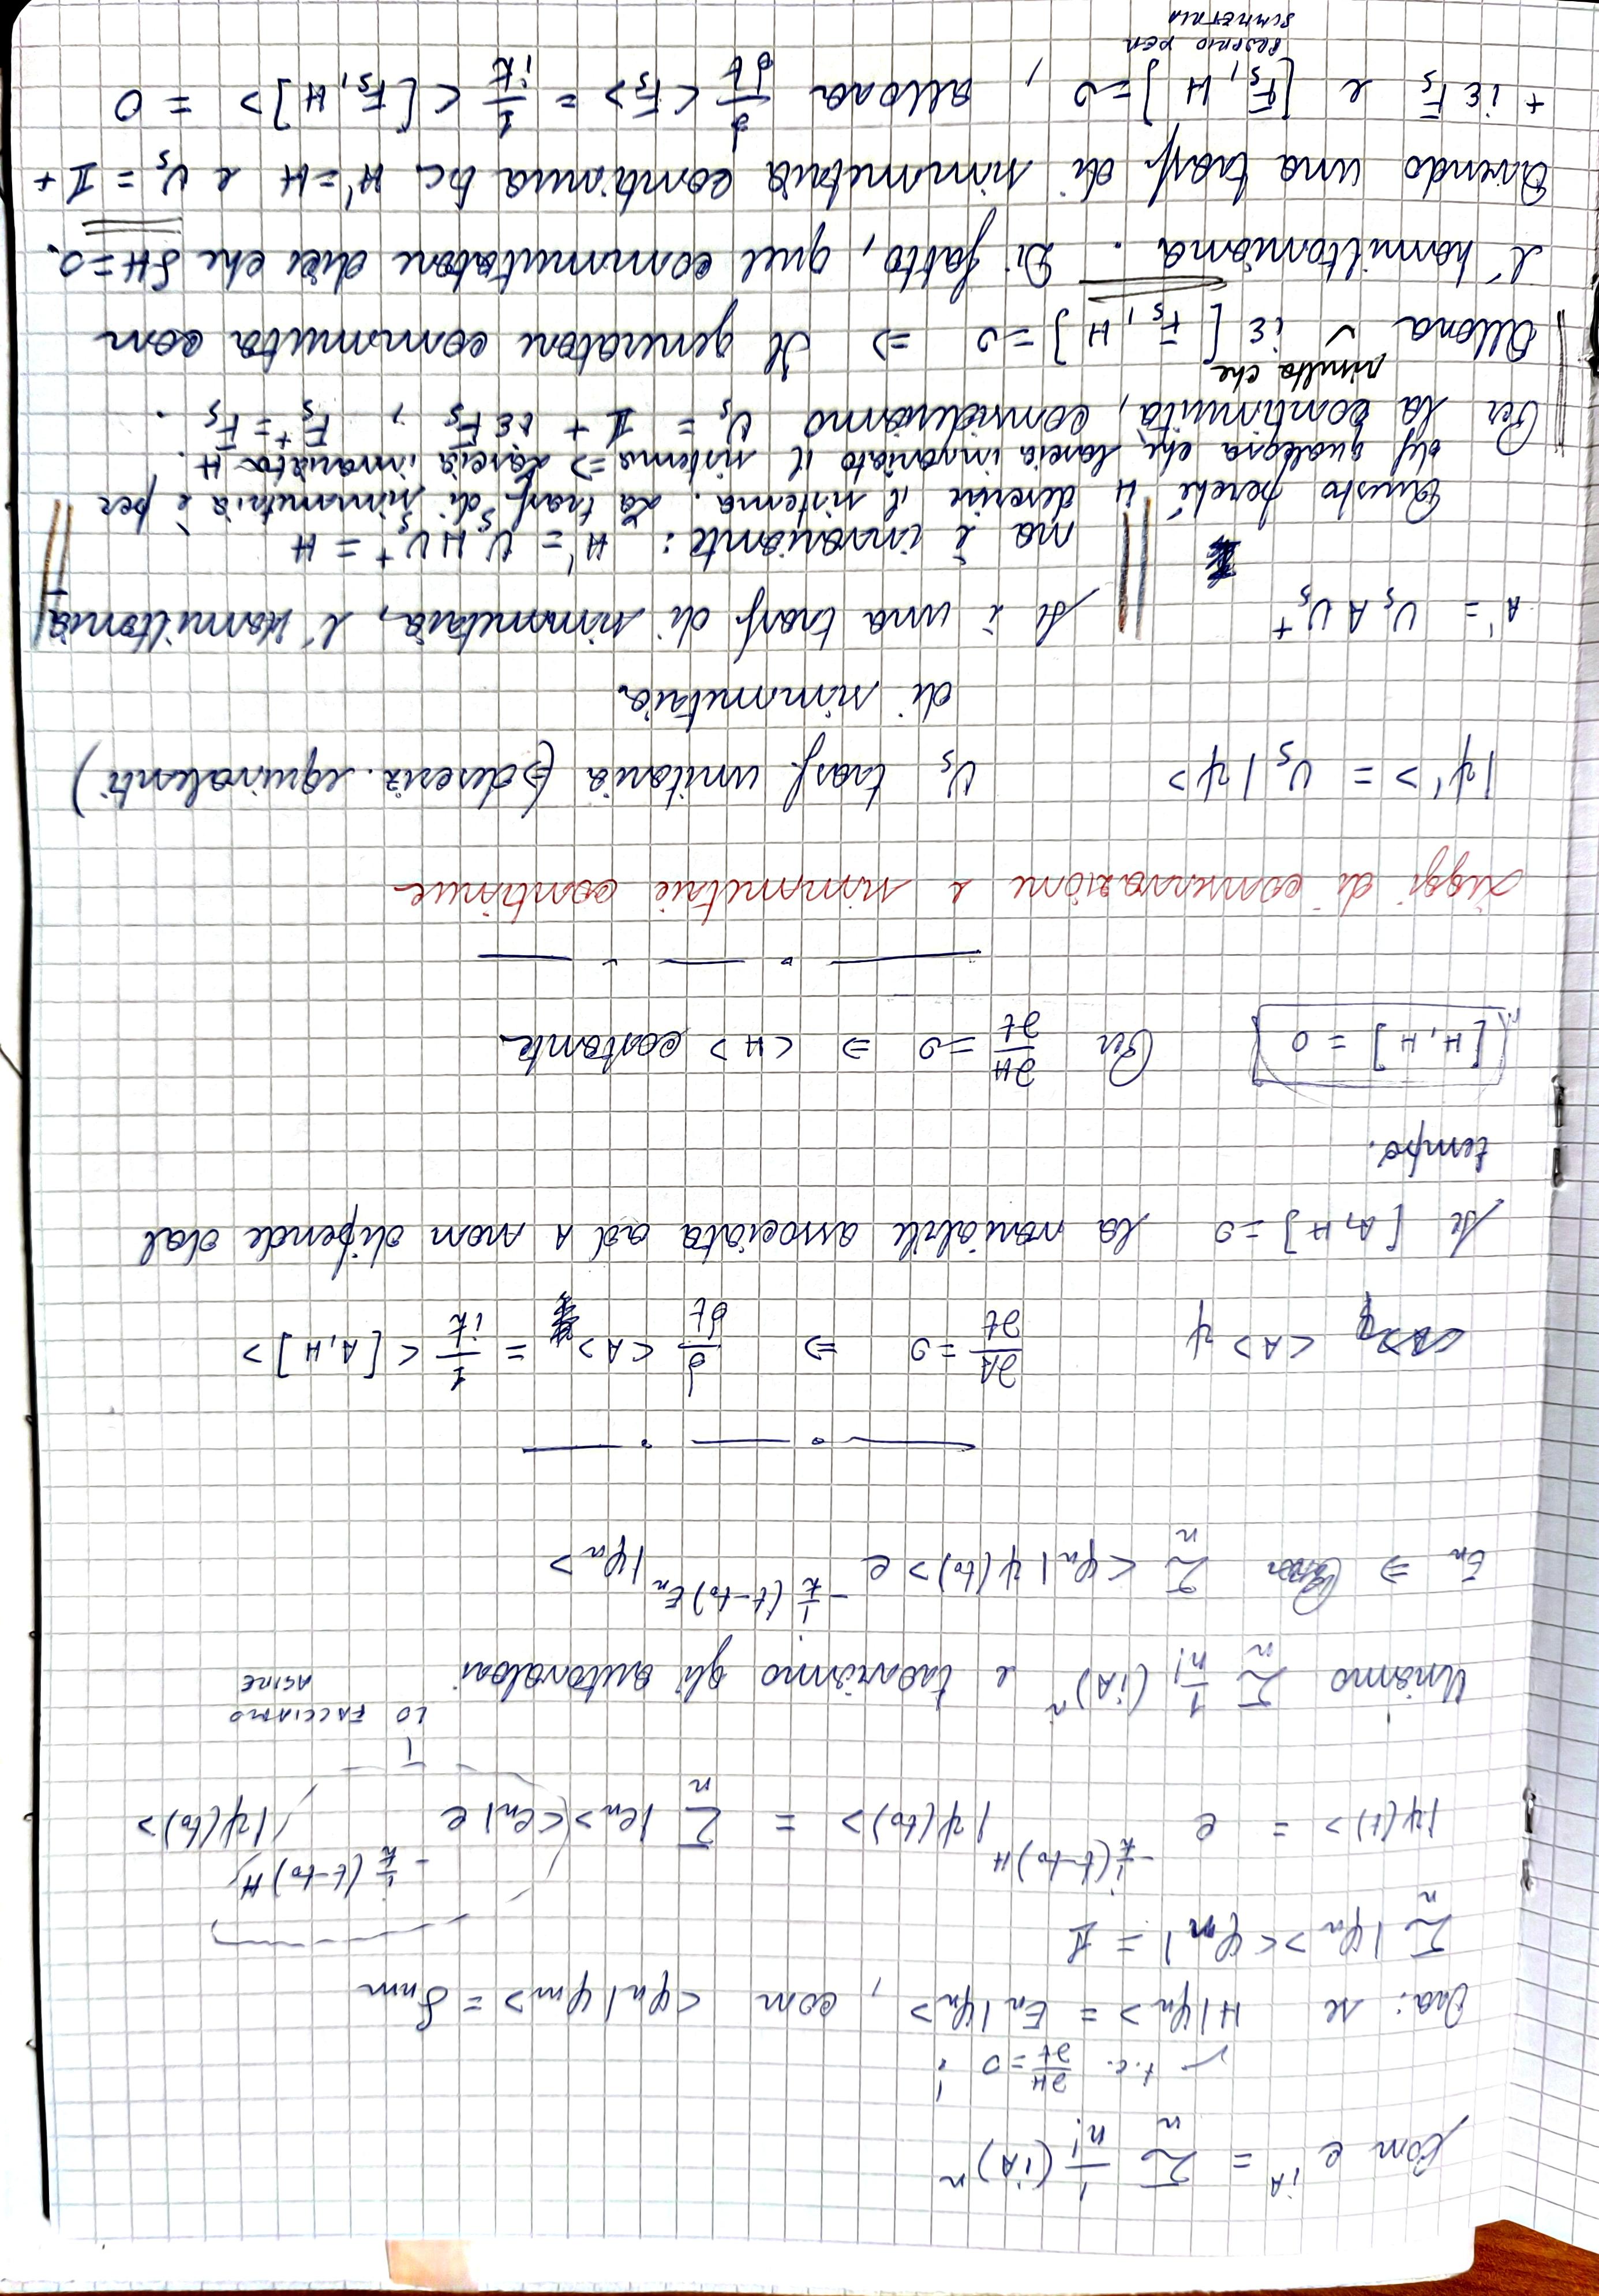 Con e^{iA} = Σ_n 1/n! (iA)^n
t.c. ∂H/∂t = 0
Ora: se H|φn> = En|φn>, con <φn|φm> = δnm
Σ_n |φn><φn| = 1
|ψ(t)> = e^{-i/ħ (t-t0)H} |ψ(t0)> = Σ_n |en><en| e^{-i/ħ (t-t0)H} |ψ(t0)>
LO FACCIAMO
AGIRE
Usiamo Σ_n 1/n! (iA)^n e troviamo gli autovalori
En ⇒ Σ_n <φn|ψ(t0)> e^{-i/ħ (t-t0)En} |φn>
<A>ψ ∂A/∂t = 0 ⇒ d/dt <A> = 1/iħ <[A,H]>
Se [A,H] = 0 la variabile associata ad A non dipende dal
tempo.
[H,H] = 0 Per ∂H/∂t = 0 ⇒ <H> costante
Leggi di conservazione e simmetrie continue
|ψ'> = Us|ψ> Us trasf. unitaria (descriz. equivalenti)
di simmetria
A' = Us A Us† Se è una trasf di simmetria, l'Hamiltonia
na è invariante: H' = Us H Us† = H
Questo perché H descrive il sistema. La trasf. di simmetria è per
def qualcosa che lascia invariato il sistema ⇒ Lascia invariata H.
Per la continuità, consideriamo Us = 1 + iεFs, Fs† = Fs.
risulta che
Allora iε[Fs, H] = 0 ⇒ Il generatore commuta con
l'hamiltoniana. Di fatto, quel commutatore dice che δH = 0.
Avendo una trasf di simmetria continua t.c. H' = H e Us = 1 +
+ iεFs e [Fs, H] = 0, allora d/dt <Fs> = 1/iħ <[Fs, H]> = 0
PROPRIO PER
SIMMETRIA